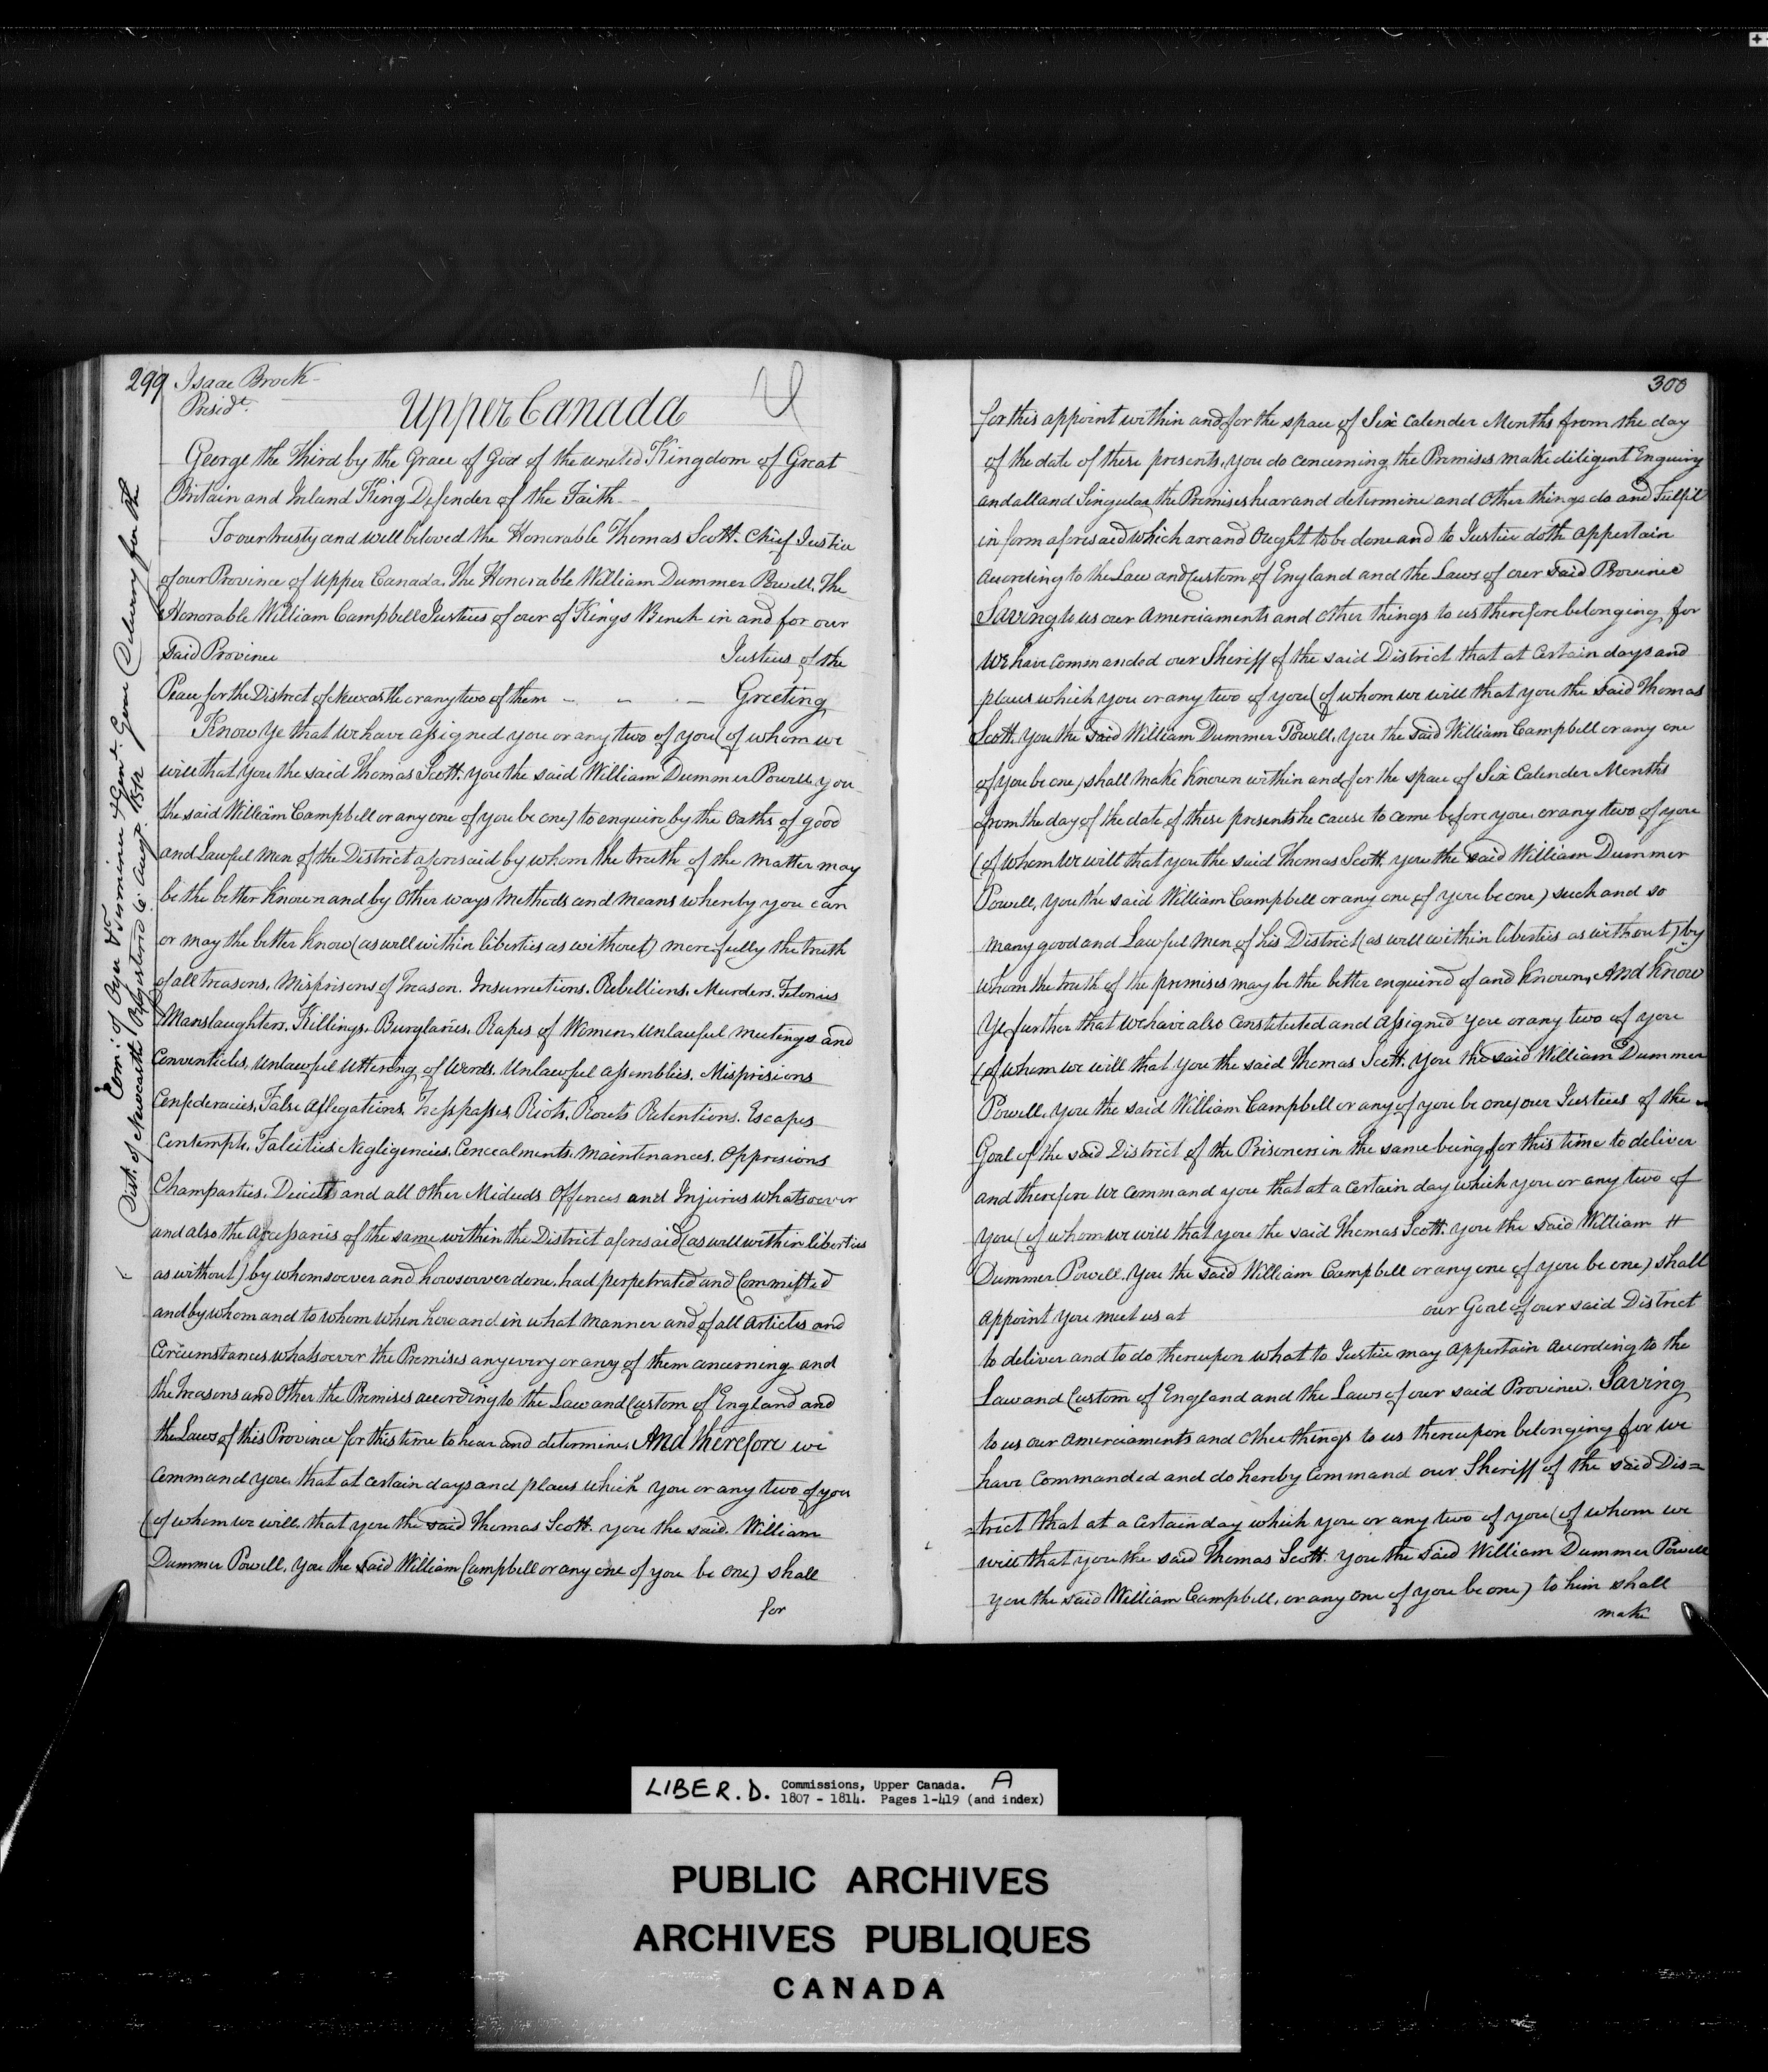 299 Isaac Brock
Presidt.
Upper Canada
George the Third by the Grace of God of the united Kingdom of Great
Britain and Ireland King Defender of the Faith
To our trusty and well beloved the Honorable Thomas Scott. Chief Justice
of our Province of Upper Canada. The Honorable William Dummer Powell. The
Honorable William Campbell Justices of our of Kings Bench in and for our
said Province Justices of the
Peace for the District of Newcastle or any two of them - - - Greeting
Know Ye that We have assigned you or any two of you (of whom we
will that you the said Thomas Scott. you the said William Dummer Powell. you
the said William Campbell or any one of you be one) to enquire by the Oaths of good
and Lawful Men of the District aforesaid by whom the truth of the Matter may
be the better Known and by Other ways Methods and Means whereby you can
or may the better Know (as well within liberties as without) more fully the truth
of all treasons, Misprisons of Treason. Insurrections. Rebellions. Murders. Felonies
Manslaughters. Killings. Burglaries. Rapes of Women. Unlawful Meetings and
Conventicles, Unlawful Uttering of Words. Unlawful assemblies. Misprisions
Confederacies, False Allegations, Tresspasses, Riots. Routs Retentions. Escapes
Contempts. Falsities Negligencies. Concealments. Maintenances. Oppresions
Champarties. Deceits and all Other Misdeeds Offences and Injuries whatsoever
and also the accessaries of the same within the District aforesaid (as well within liberties
as without) by whomsoever and howsoever done. had perpetrated and Committed
and by whom and to whom When how and in what Manner and of all Articles and
Circumstances whatsoever the Premises any every or any of them concerning and
the Treasons and Other the Premises according to the Law and Custom of England and
the Laws of this Province for this time to hear and determine. And therefore we
Command you. that at certain days and places which you or any two of you
(of whom we will. that you the said Thomas Scott. you the said. William
Dummer Powell. you the said William Campbell or any one of you be one) shall
for
Com: of Oyer & Terminer & Genl. Genl Delivery for the
Dist. of Newcastle Registered 10: Augt. 1812
300
for this appoint within and for the space of Six Calender Months from the day
of the date of these presents, you do concerning the Premises make diligent Enquiry
and all and Singular the Premises hear and determine and Other things do and Fulfil
in form aforesaid which are and Ought to be done and to Justice doth appertain
according to the Law and Custom of England and the Laws of our said Province
Saving to us our Amerciaments and other things to us therefore belonging for
We have Commanded our Sheriff of the said District that at Certain days and
places which you or any two of you (of whom we will that you the said Thomas
Scott. you the said William Dummer Powell, you the said William Campbell or any one
of you be one) shall Make Known within and for the space of Six Calender Months
from the day of the date of these presents he cause to come before you or any two of you
(of whom We will that you the said Thomas Scott. you the said William Dummer
Powell. you the said William Campbell or any one of you be one) such and so
Many good and Lawful Men of his District (as well within liberties as without) by
Whom the truth of the premises may be the better enquired of and Known, And Know
Ye further that We have also Constituted and Assigned you or any two of you
(of whom we will that you the said Thomas Scott. you the said William Dummer
Powell. you the said William Campbell or any of you be one) our Justices of the
Goal of the said District of the Prisoners in the same being for this time to deliver
and therefore We command you that at a certain day which you or any two of
you (of whom we will that you the said Thomas Scott. you the said William
Dummer Powell. you the said William Campbell or any one of you be one) shall
appoint you meet us at our Goal of our said District
to deliver and to do thereupon what to Justice may appertain according to the
Law and Custom of England and the Laws of our said Province. Saving
to us our Amerciaments and other things to us thereupon belonging for we
have Commanded and do hereby Command our Sheriff of the said Dis=
=trict that at a Certain day which you or any two of you (of whom we
will that you the said Thomas Scott. you the said William Dummer Powell
you the said William Campbell, or any one of you be one) to him shall
make
LIBER. D. Commissions, Upper Canada. A
1807 - 1814. Pages 1-419 (and index)
PUBLIC ARCHIVES
ARCHIVES PUBLIQUES
CANADA